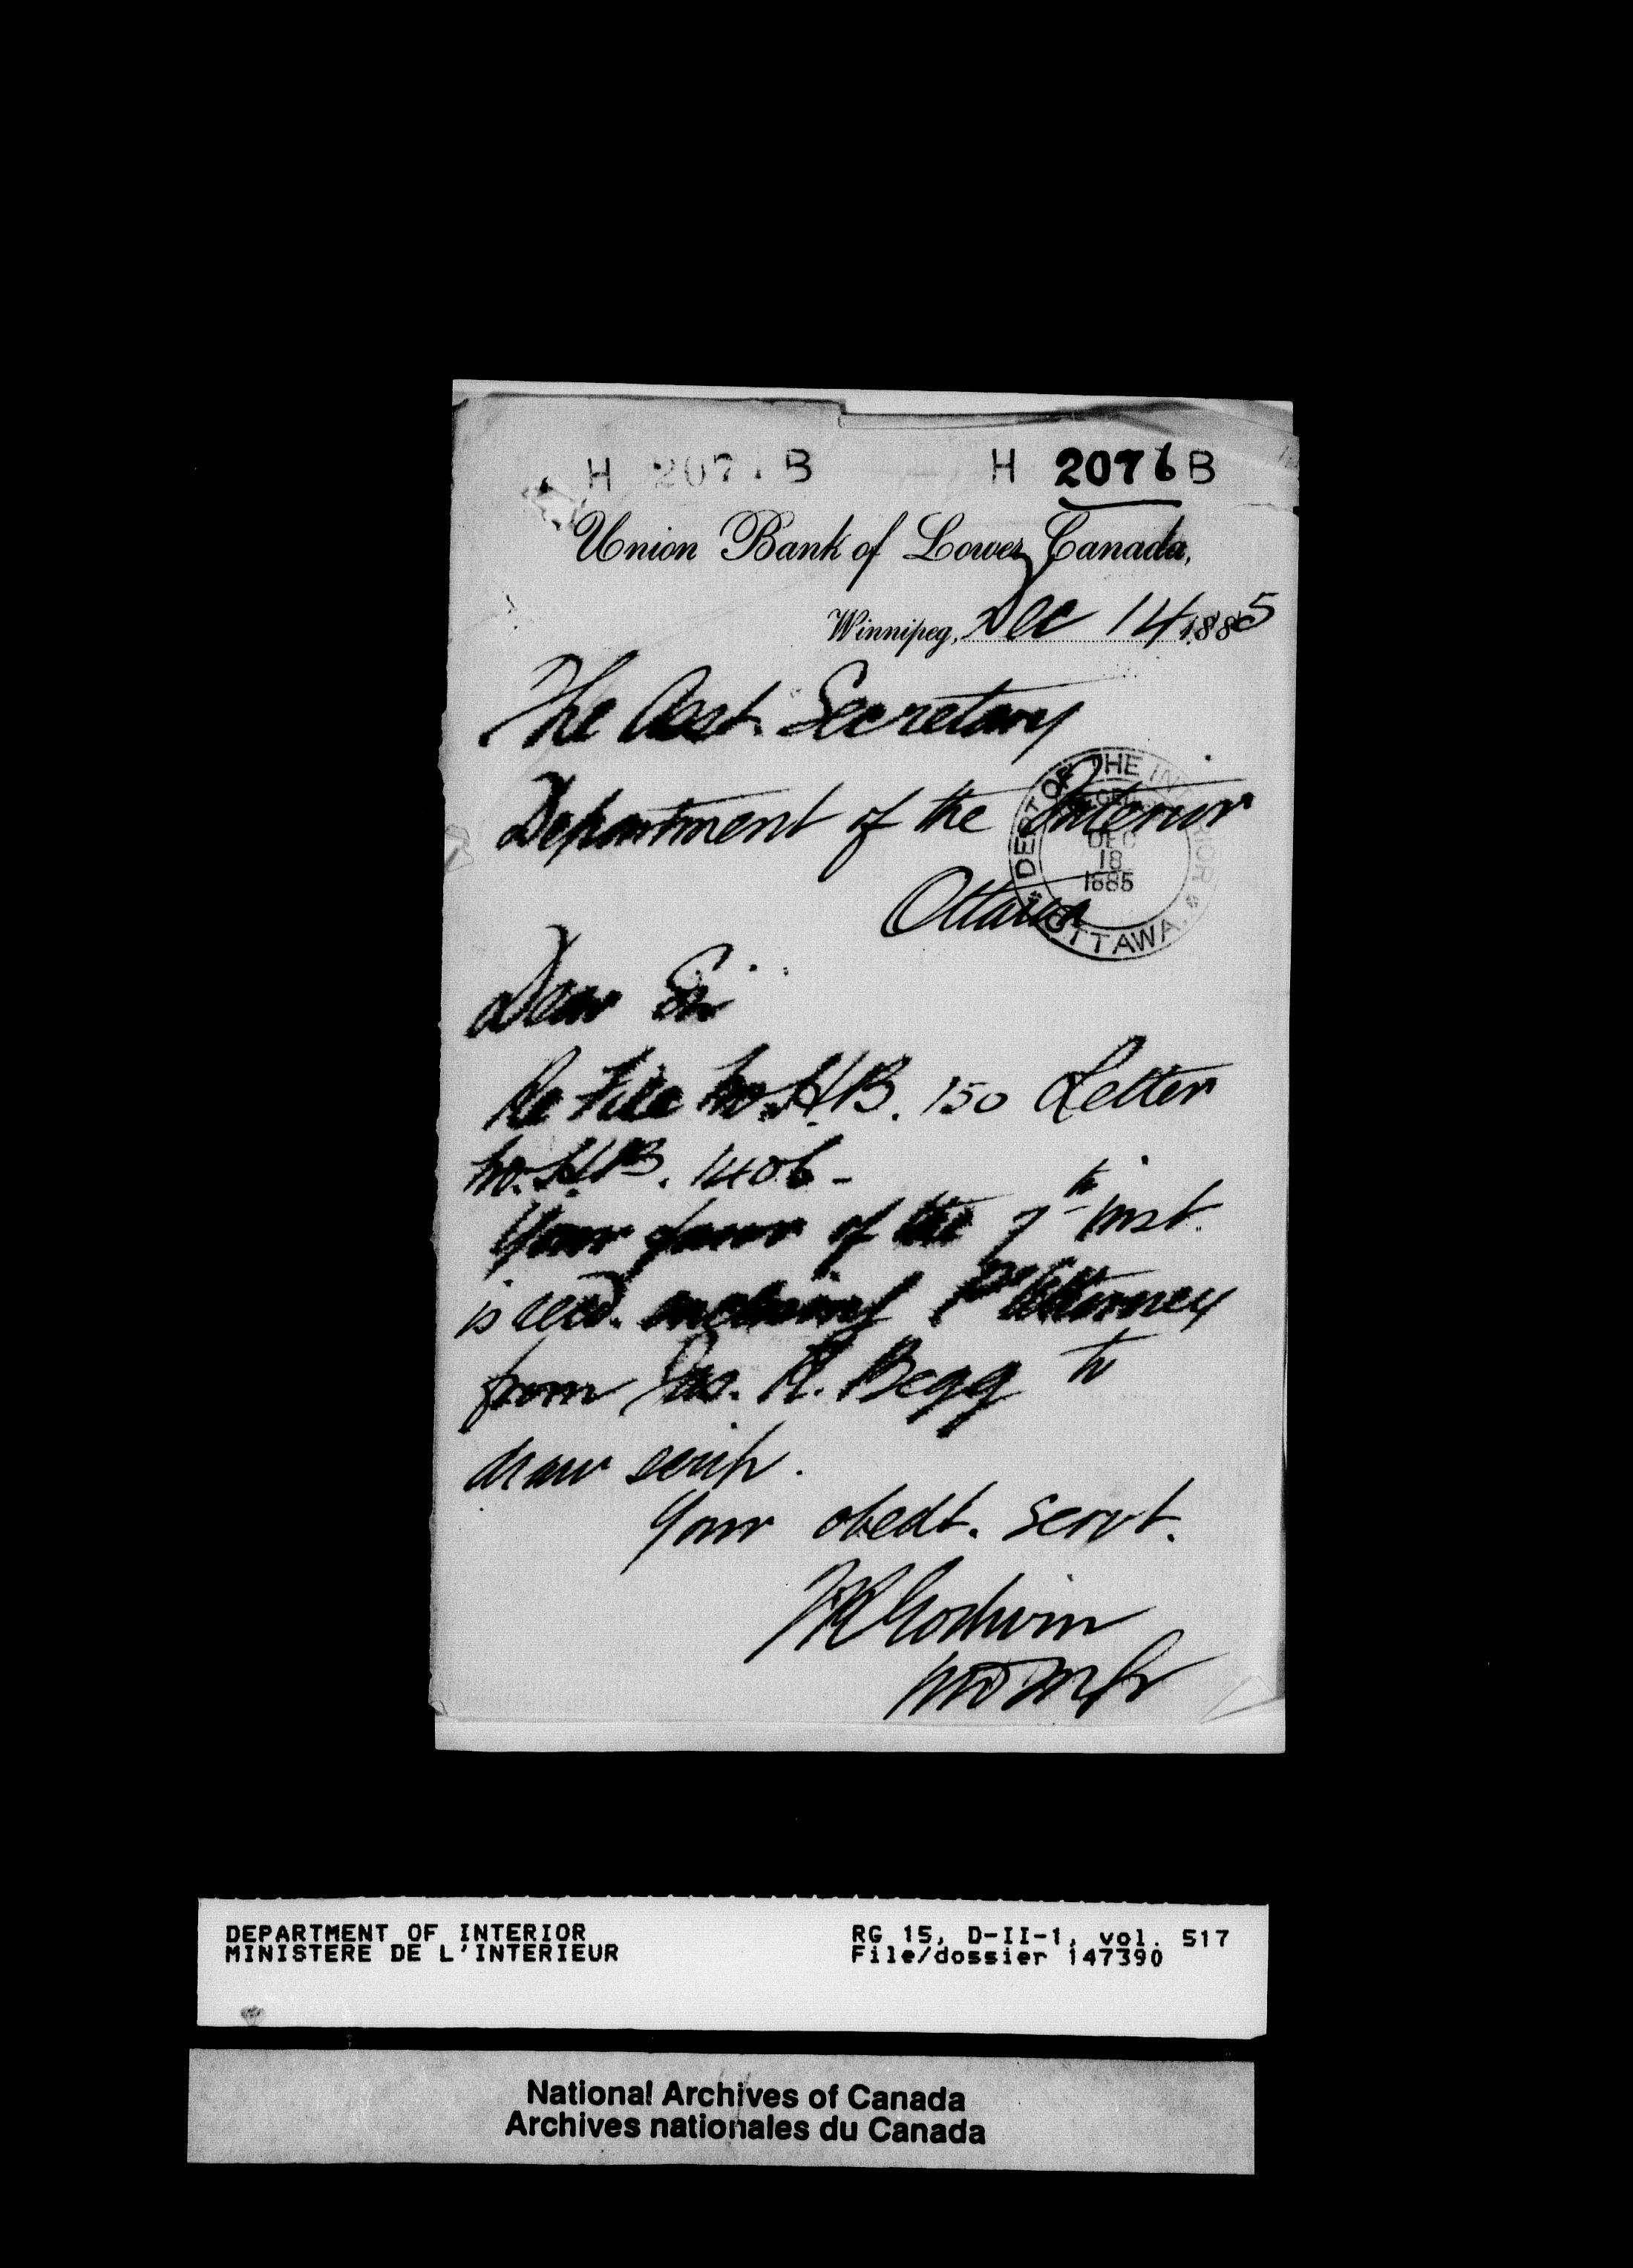 H 207 B H 2076 B
Union Bank of Lower Canada,
Winnipeg, Dec 14 1885
The Asst. Secretary
Department of the Interior
Ottawa
DEPT OF THE INTERIOR
DEC
18
1885
OTTAWA.
Dear Sir
Re File No. H.B. 150 Letter
No. H.B. 1406 -
Your favor of the 7th inst.
is recd. enclosing P Attorney
from Jas. R. Begg to
draw scrip.
Your obedt. servt.
Godwin
DEPARTMENT OF INTERIOR RG 15, D-II-1, vol. 517
MINISTERE DE L'INTERIEUR File/dossier 147390
National Archives of Canada
Archives nationales du Canada